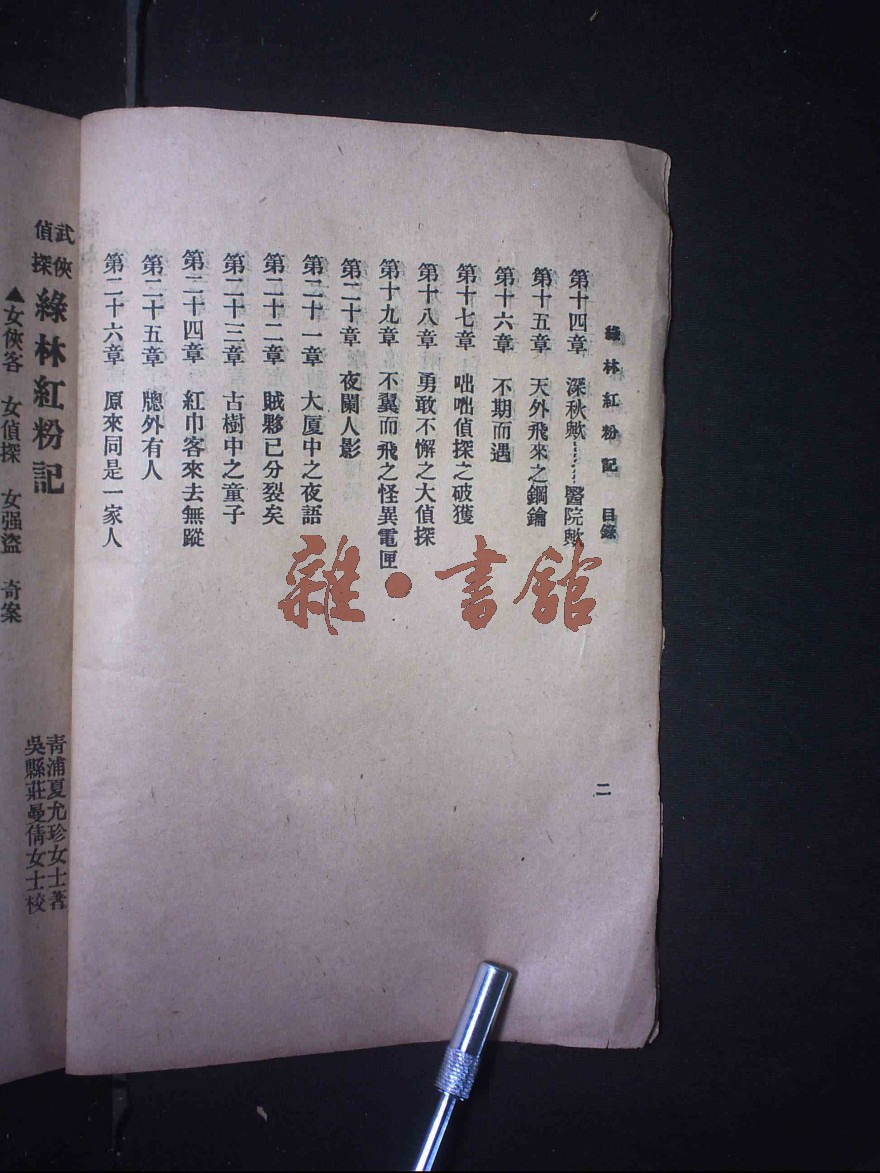 綠林紅粉記 目錄 二
第十四章 深秋歟……醫院歟
第十五章 天外飛來之鋼鑰
第十六章 不期而遇
第十七章 咄咄偵探之破獲
第十八章 勇敢不懈之大偵探
第十九章 不翼而飛之怪異電匣
第二十章 夜闌人影
第二十一章 大厦中之夜語
第二十二章 賊夥已分裂矣
第二十三章 古樹中之童子
第二十四章 紅巾客來去無蹤
第二十五章 牕外有人
第二十六章 原來同是一家人
武俠
偵探
綠林紅粉記
青浦夏允珍女士著
吳縣莊曼倩女士校
▲女俠客 女偵探 女强盜 奇案
雜·書館